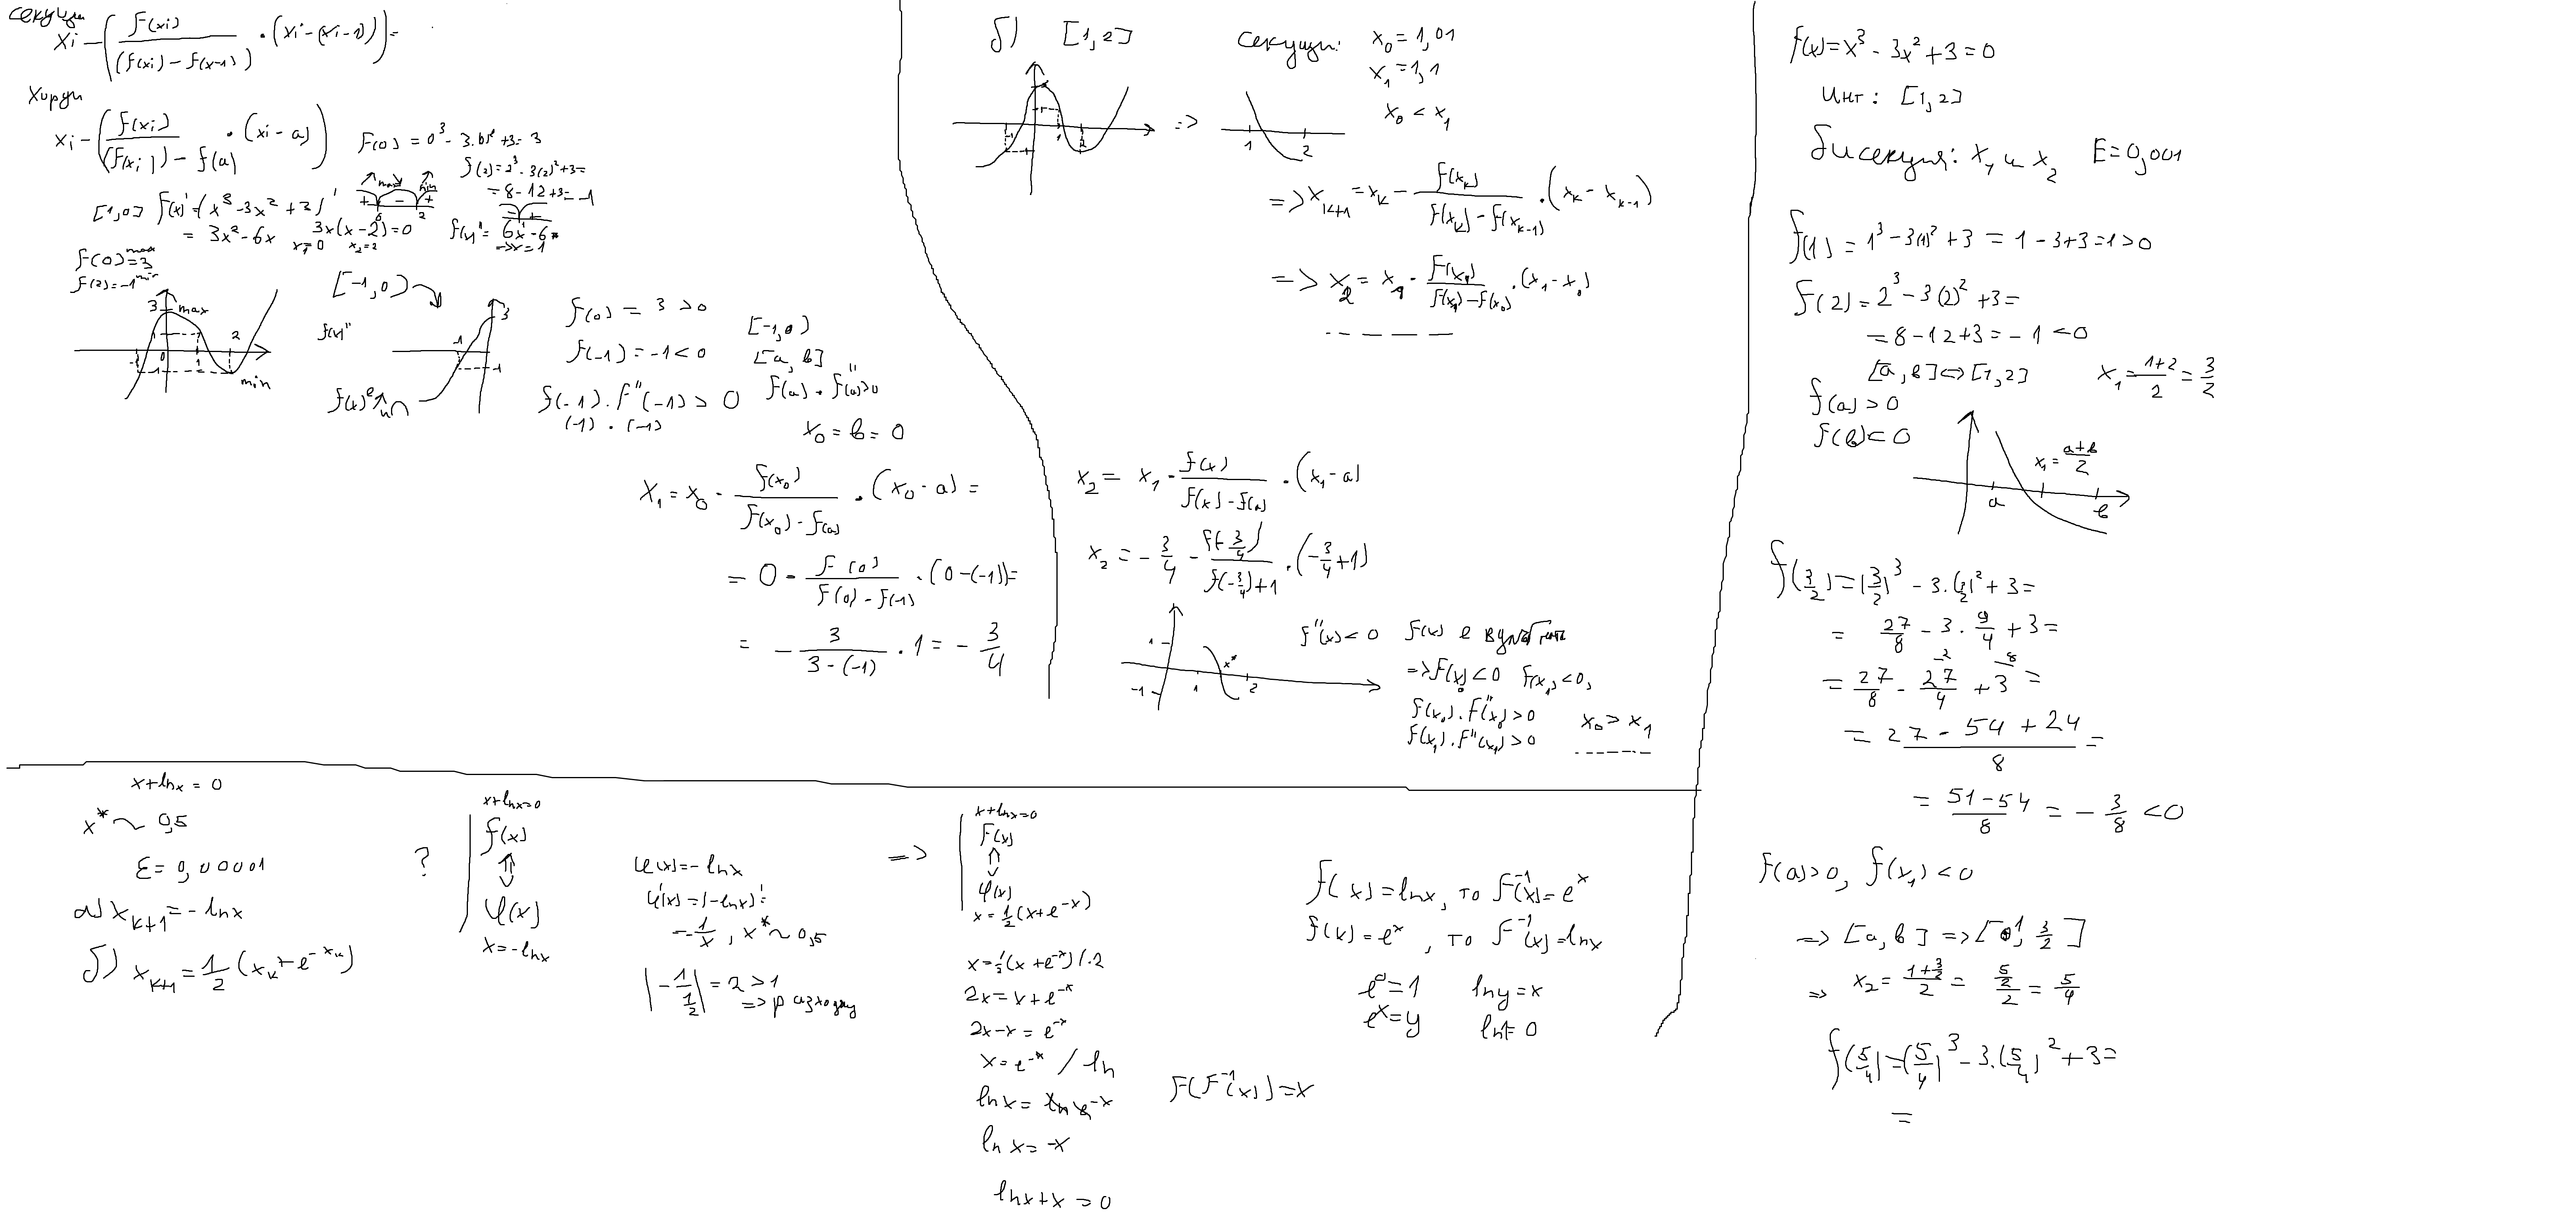 секущи
xi - (f(xi) / (f(xi) - f(x-1)) · (xi - (xi-1))) =
Хорди
xi - (f(xi) / (f(xi)) - f(a) · (xi - a))
f(0) = 0³ - 3.0² + 3 = 3
f(2) = 2³ - 3(2)² + 3 =
= 8 - 12 + 3 = -1
[1,0] f(x)' = (x³ - 3x² + 3)'
= 3x² - 6x 3x(x-2) = 0
x₁ = 0 x₂ = 2
max min
+ - +
0 2
f(x)'' = 6x - 6
- +
1
=> x = 1
f(0) = 3 max
f(2) = -1 min
3 max
-1 0 1 2
-1 min
[-1,0)
f(x)''
3
-1
-1
f(x) е ↗ и ∩
f(0) = 3 > 0
f(-1) = -1 < 0
[-1,0)
[a, b]
f(-1) . f''(-1) > 0
(-1) . (-1)
f(a) . f''(a) > 0
x₀ = b = 0
x₁ = x₀ - f(x₀) / (f(x₀) - f(a)) · (x₀ - a) =
= 0 - f(0) / (f(0) - f(-1)) · (0 - (-1)) =
= - 3 / (3 - (-1)) · 1 = - 3/4
б) [1,2]
-1 1 2
=>
1 2
секущи: x₀ = 1,01
x₁ = 1,1
x₀ < x₁
=> x_{k+1} = x_k - f(x_k) / (f(x_k) - f(x_{k-1})) · (x_k - x_{k-1})
=> x₂ = x₁ - f(x₁) / (f(x₁) - f(x₀)) · (x₁ - x₀)
- - - -
x₂ = x₁ - f(x) / (f(x) - f(a)) · (x₁ - a)
x₂ = - 3/4 - f(-3/4) / (f(-3/4) + 1) · (-3/4 + 1)
1
-1 1 x* 2
f''(x) < 0 f(x) е
=> f(x₀) < 0 f(x₁) < 0,
f(x₀) . f''(x₀) > 0
f(x₁) . f''(x₁) > 0
x₀ > x₁
f(x) = x³ - 3x² + 3 = 0
Инт: [1,2]
бисекция: x₁ и x₂ E = 0,001
f(1) = 1³ - 3(1)² + 3 = 1 - 3 + 3 = 1 > 0
f(2) = 2³ - 3(2)² + 3 =
= 8 - 12 + 3 = -1 < 0
[a, b] <=> [1,2] x₁ = (1+2)/2 = 3/2
f(a) > 0
f(b) < 0
x₁ = (a+b)/2
a b
f(3/2) = (3/2)³ - 3.(3/2)² + 3 =
= 27/8 - 3 . 9/4 + 3 =
= 27/8 - 27/4 + 3 =
= (27 - 54 + 24)/8 =
= (51 - 54)/8 = - 3/8 < 0
f(a) > 0, f(x₁) < 0
=> [a, b] => [1, 3/2]
=> x₂ = (1 + 3/2)/2 = (5/2)/2 = 5/4
f(5/4) = (5/4)³ - 3.(5/4)² + 3 =
=
x + lnx = 0
x* ~ 0,5
ε = 0,00001
а) x_{k+1} = - lnx
б) x_{k+1} = 1/2 (x_k + e^{-x_k})
?
x + lnx = 0
f(x)
⇕
φ(x)
x = -lnx
φ(x) = - lnx
φ'(x) = (-lnx)' =
- 1/x , x* ~ 0,5
|-1/(1/2)| = 2 > 1
=> разходящ
=>
x + lnx = 0
f(x)
⇕
φ(x)
x = 1/2 (x + e^{-x})
x = 1/2 (x + e^{-x}) /.2
2x = x + e^{-x}
2x - x = e^{-x}
x = e^{-x} / ln
lnx = ln e^{-x}
ln x = -x
lnx + x = 0
f(x) = lnx, то f⁻¹(x) = e^x
f(x) = e^x , то f⁻¹(x) = lnx
e⁰ = 1 lny = x
e^x = y ln1 = 0
f(f⁻¹(x)) = x